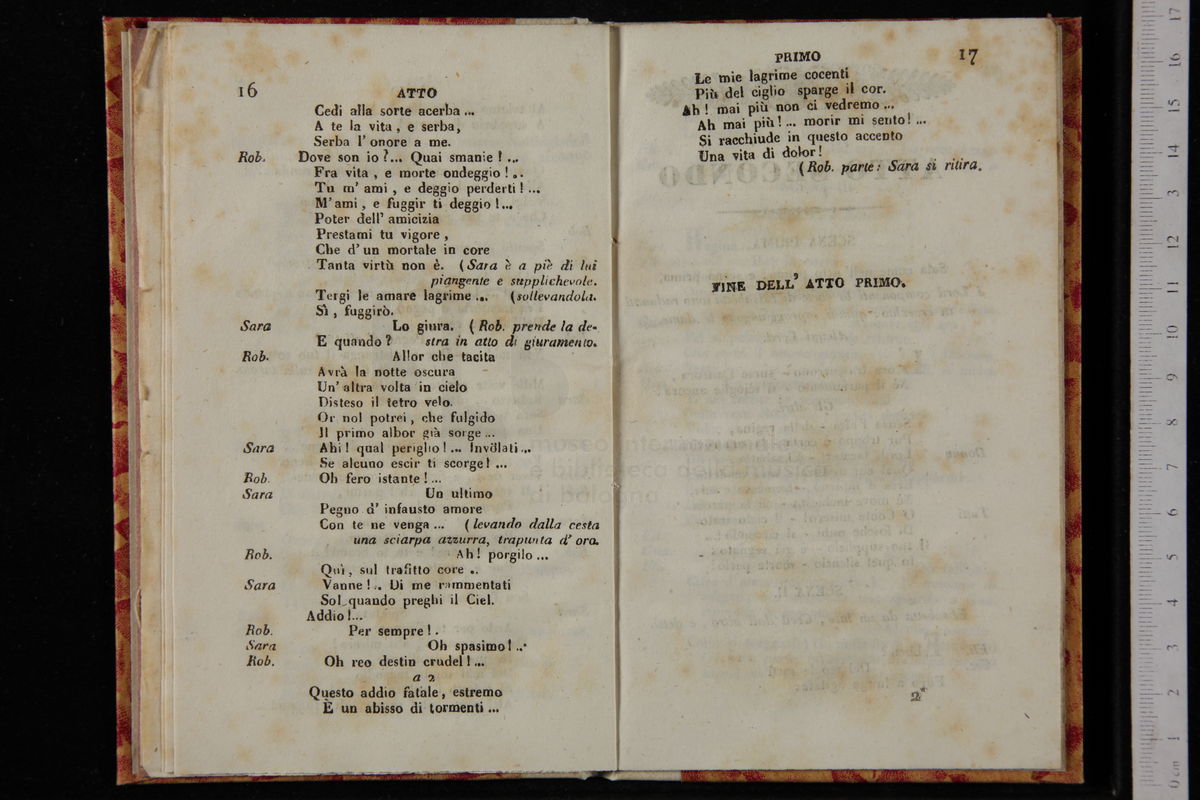 16
ATTO
Cedi alla sorte acerba ...
A te la vita , e serba,
Serba l' onore a me.
Rob. Dove son io ?... Quai smanie ! ...
Fra vita , e morte ondeggio ! ..
Tu m' ami , e deggio perderti ! ...
M' ami , e fuggir ti deggio !...
Poter dell' amicizia
Prestami tu vigore ,
Che d' un mortale in core
Tanta virtù non è. (Sara è a piè di lui
piangente e supplichevole.
Tergi le amare lagrime ... (sollevandola.
Sì , fuggirò.
Sara Lo giura. ( Rob. prende la de-
E quando ? stra in atto di giuramento.
Rob. Allor che tacita
Avrà la notte oscura
Un' altra volta in cielo
Disteso il tetro velo.
Or nol potrei , che fulgido
Il primo albor già sorge ...
Sara Ahi ! qual periglio ! ... Invòlati ...
Se alcuno escir ti scorge ! ...
Rob. Oh fero istante ! ...
Sara Un ultimo
Pegno d' infausto amore
Con te ne venga ... (levando dalla cesta
una sciarpa azzurra, trapunta d' oro.
Rob. Ah ! porgilo ...
Quì , sul trafitto core ..
Sara Vanne ! .. Di me rammentati
Sol quando preghi il Ciel.
Addio !...
Rob. Per sempre ! .
Sara Oh spasimo ! ...
Rob. Oh reo destin crudel ! ...
a 2
Questo addio fatale , estremo
È un abisso di tormenti ...
PRIMO
17
Le mie lagrime cocenti
Più del ciglio sparge il cor.
Ah ! mai più non ci vedremo ...
Ah mai più ! ... morir mi sento ! ...
Si racchiude in questo accento
Una vita di dolor !
( Rob. parte : Sara si ritira.
FINE DELL' ATTO PRIMO.
2*
museo internazionale
e biblioteca della musica
di bologna
0 cm 1 2 3 4 5 6 7 8 9 10 11 12 13 14 15 16 17